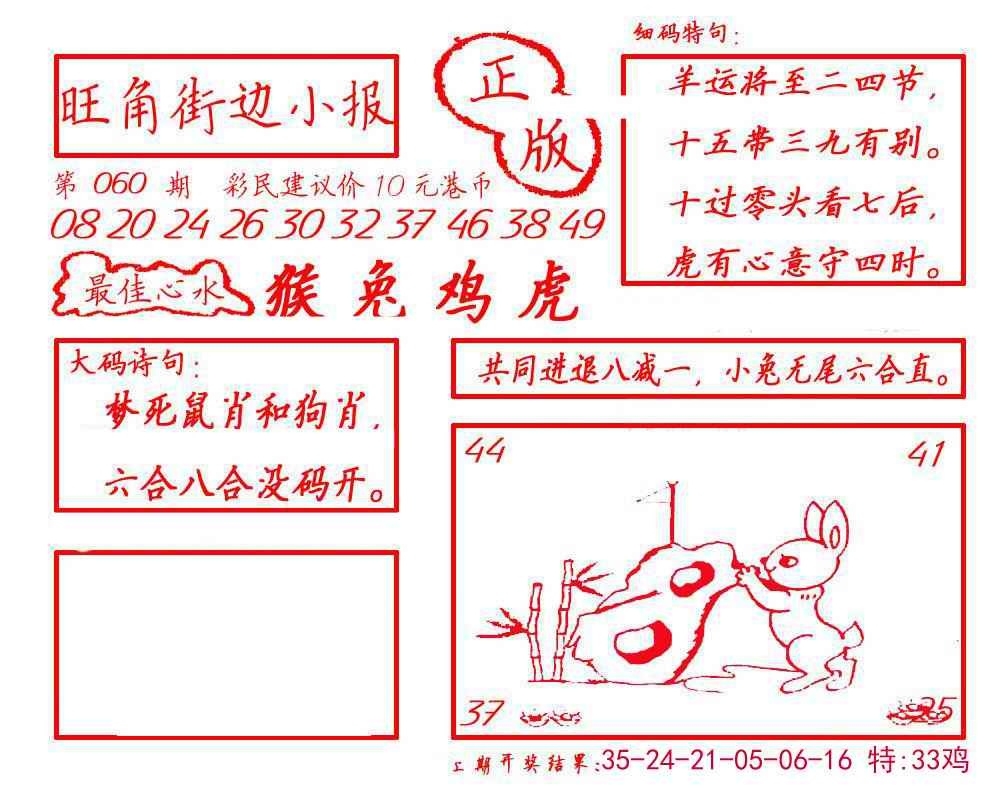 细码特句：
旺角街边小报
正版
羊运将至二四节，
十五带三九有别。
十过零头看七后，
虎有心意守四时。
第 060 期 彩民建议价 10 元港币
08 20 24 26 30 32 37 46 38 49
最佳心水 猴 兔 鸡 虎
大码诗句：
梦死鼠肖和狗肖，
六合八合没码开。
共同进退八减一，小兔无尾六合直。
44 41
37 25
期开奖结果：35-24-21-05-06-16 特：33鸡